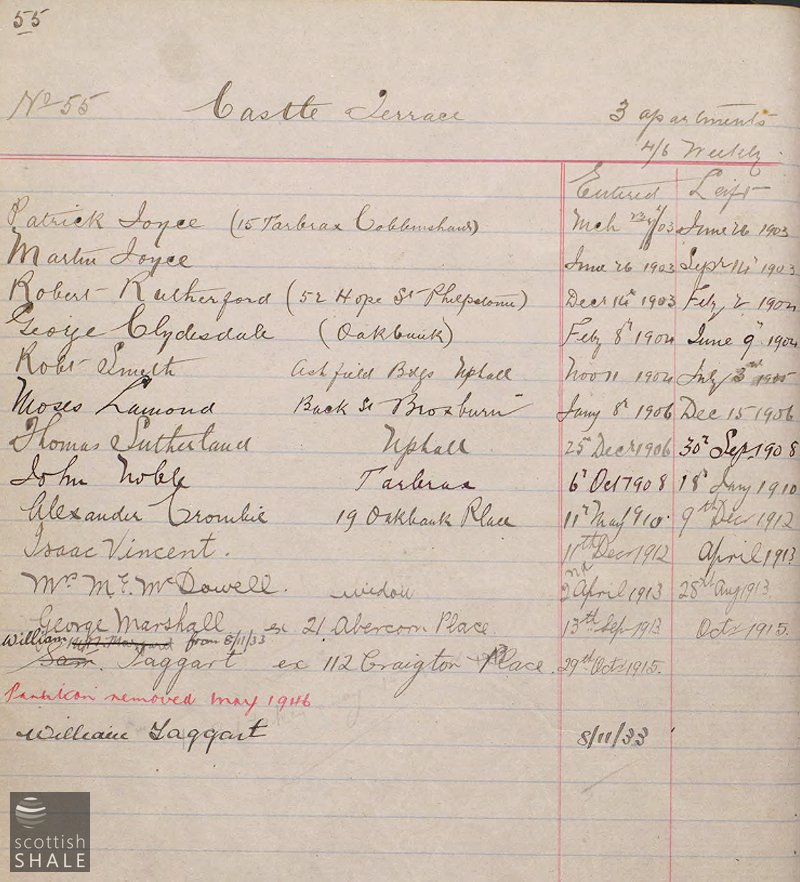 55
No 55 Castle Terrace 3 apartments
4/6 Weekly
Entered Left
Patrick Joyce (15 Tarbrax Cobbinshaw) Mch /03 June 26 1903
Martin Joyce June 26 1903 Sepr 14th 1903
Robert Rutherford (52 Hope St Philpstoun) Decr 14th 1903 Feby 2 1904
George Clydesdale (Oakbank) Feby 8th 1904 June 9th 1904
Robt Smith Ashfield Bdgs Uphall Nov 11 1904 July 3rd 1905
Moses Lamond Back St Broxburn Jany 8th 1906 Dec 15 1906
Thomas Sutherland Uphall 25th Decr 1906 30th Sep 1908
John Noble Tarbrax 6th Oct 1908 18th Jany 1910
Alexander Crombie 19 Oakbank Place 11th May 1910 9th Decr 1912
Isaac Vincent. 11th Decr 1912 April 1913
Mrs McDowell. widow 2nd April 1913 28th Aug 1913
George Marshall ex 21 Abercorn Place 13th Sep 1913 Octr 1915.
William from 8/11/33
Sam. Taggart ex 112 Craigton Place. 29th Octr 1915.
Partition removed May 1946
William Taggart 8/11/33
scottish
SHALE